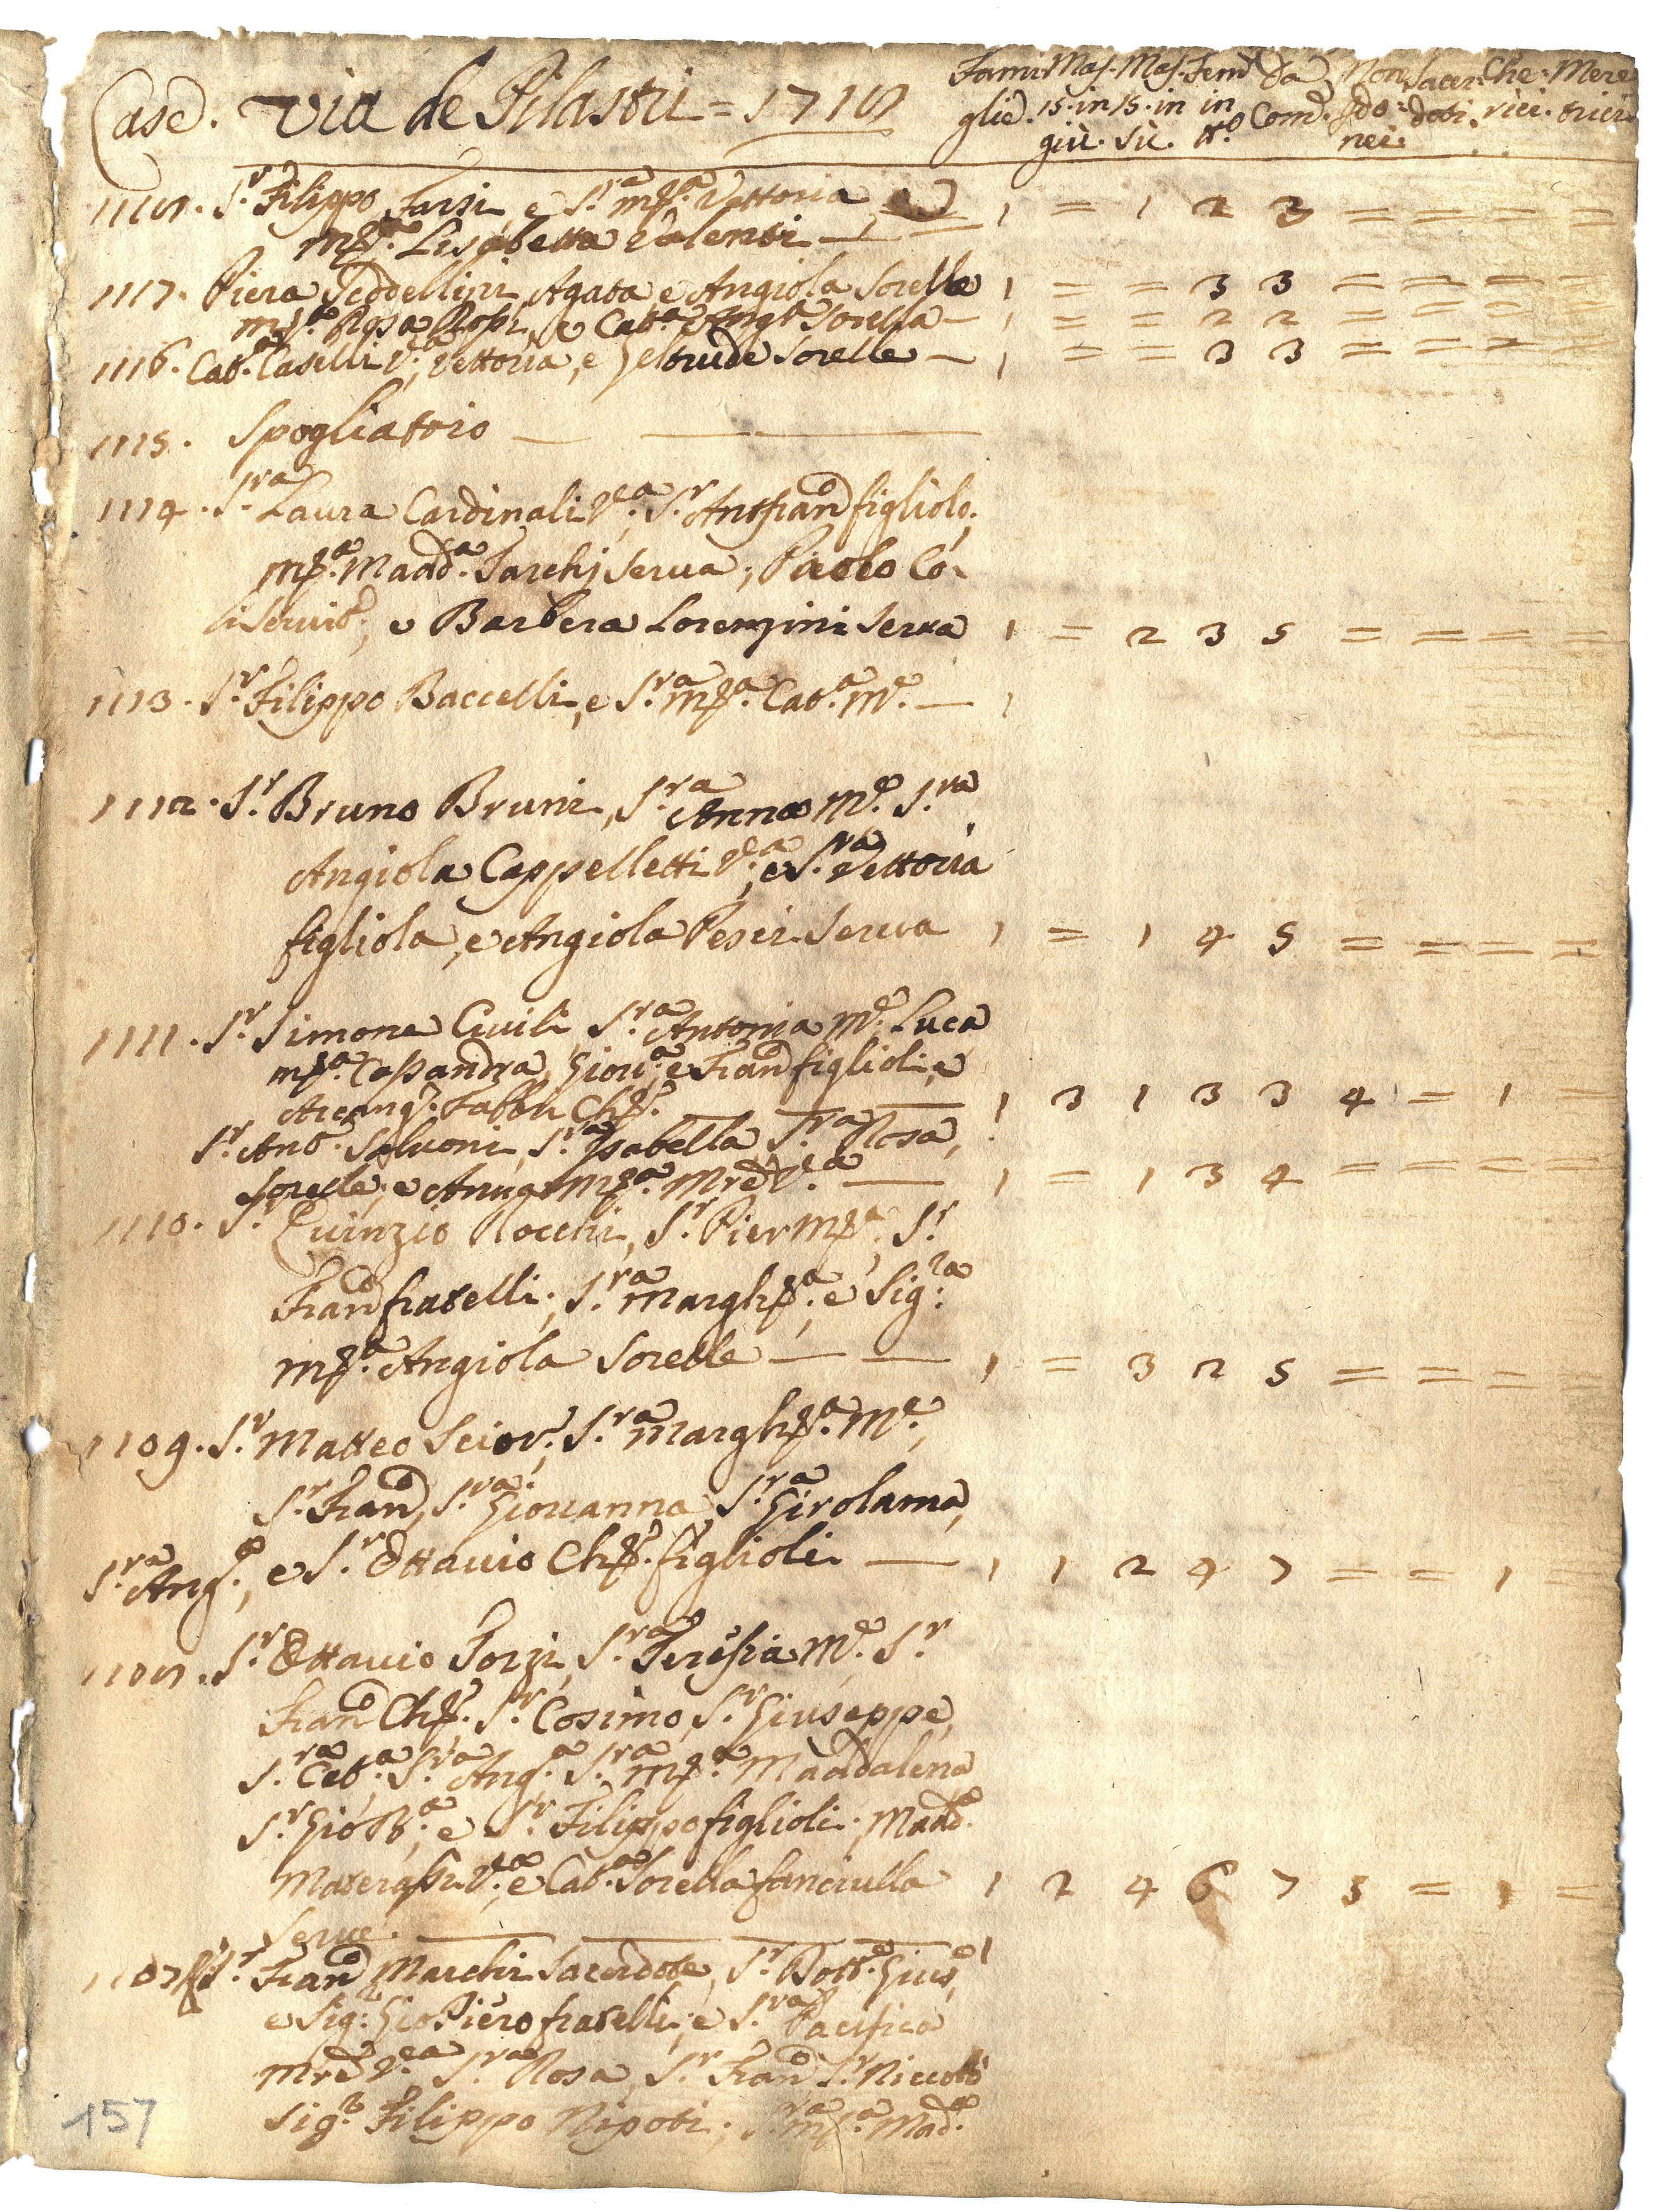 Case. Via de Pilastri = 1718 Fami: Mas. Mas. Fem: Da Non Sacer: Che: Mere:
glie. 15. in 15. in in Com. Ido: doti. rici. trici.
giù. sù. tt.o nei.
1118. S.r Filippo Farsi, e S.ra M.a Vettoria, e 1 = 1 2 3 = = = = =
M.a Lisabetta Valenti
1117. Piera Teddellini, Agata, e Angiola Sorelle 1 = = 3 3 = = = = =
M.a Rosa Rossi, e Cat.a Ang.a Sorella 1 = = 2 2 = = = = =
1116. Cat.a Caselli V.a, Vettoria, e Geltrude Sorelle 1 = = 3 3 = = = = =
1115. Spogliatoio
1114. S.ra Laura Cardinali V.a, S.r Ant.o Fran.o figliolo,
M.a Madd.a Tarchj serva, Paolo Co:
li servit.e, e Barbera Lorenzini serva 1 = 2 3 5 = = = =
1113. S.r Filippo Baccelli, e S.ra M.a Cat.a M.e 1
1112. S.r Bruno Bruni, S.ra Anna M.e S.ra
Angiola Cappelletti V.a, e S.ra Vettoria
figliola, e Angiola Pesci serva 1 = 1 4 5 = = = =
1111. S.r Simone Civili, S.ra Antonia M.e Luca
M.a Casandra, Giov.a, e Fran.o figlioli, e
Arcang.o Fabbri Ch.o 1 3 1 3 3 4 = 1 =
S.r Ant.o Salvoni, S.ra Isabella, S.ra Rosa,
Sorelle, e M.a Mre V.a 1 = 1 3 4 = = = =
1110. S.r Quinzio Rocchi, S.r Pier M.a, S.r
Fran.o fratelli, S.ra Margh.a, e Sig.ra
M.a Angiola Sorelle 1 = 3 2 5 = = = =
1109. S.r Matteo Scior, S.ra Margh.a M.e,
S.r Fran.o, S.ra Giovanna, S.ra Girolama,
S.ra Ang.a, e S.r Ottavio Ch.o figlioli 1 1 2 4 7 = = 1 =
1108. S.r Ottavio Forzi, S.ra Teresia M.e S.r
Fran.o Ch.o S.r Cosimo, S.r Giuseppe,
S.ra Cat.a S.ra Ang.a S.ra M.a Maddalena
S.r Gio B.a, e S.r Filippo figlioli. Madd.a
Materassi V.a, e Cat.a Sorella fanciulla 1 2 4 6 7 5 = 1 =
Serve.
1107. S.r Fran.o Marchi Sacerdote, S.r Dott.e Gius.e 1
e Sig.r Gio Piero fratelli, e S.ra Pacifica
Mre V.a S.ra Rosa, S.r Fran.o S.r Niccolò
Sig.r Filippo Nipoti, S.ra M.a Mad.a
157